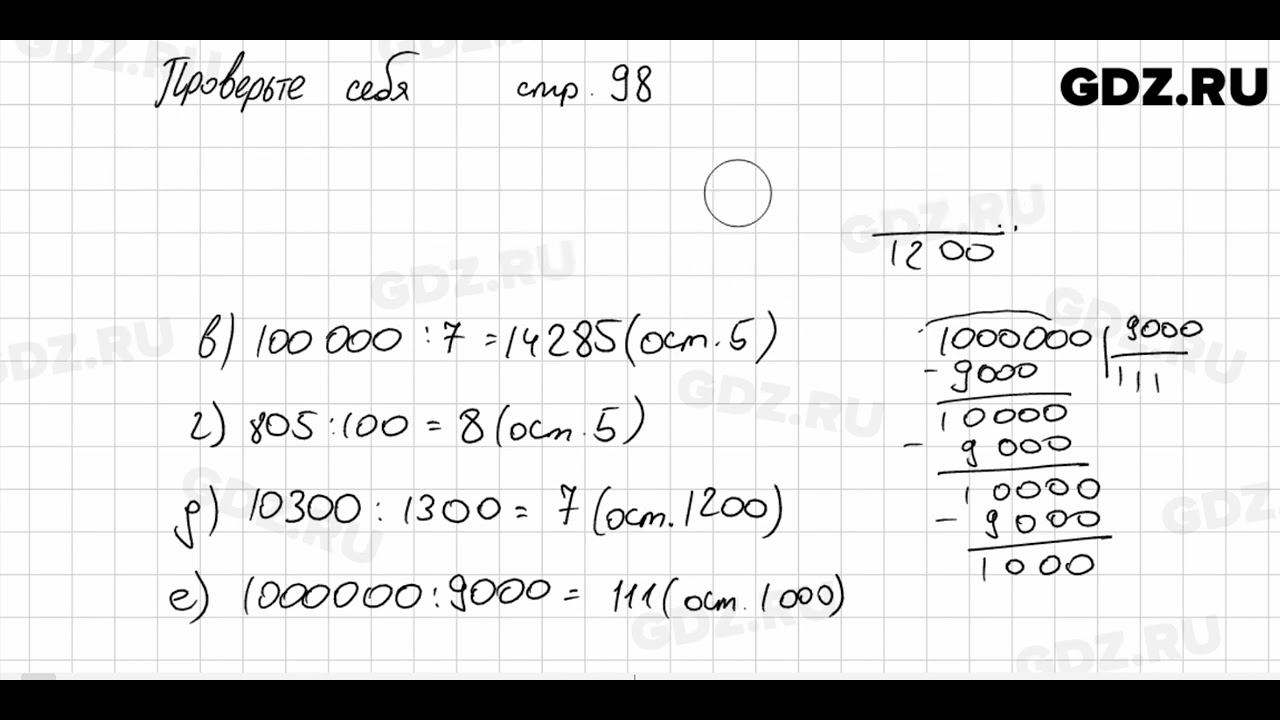 Проверьте себя стр. 98
GDZ.RU
1200
в) 100 000 : 7 = 14285 (ост. 5)
г) 805 : 100 = 8 (ост. 5)
д) 10300 : 1300 = 7 (ост. 1200)
е) 1000000 : 9000 = 111 (ост. 1000)
1000000 9000
- 9000 111
10000
- 9000
10000
- 9000
1000
GDZ.RU
GDZ.RU
GDZ.RU
GDZ.RU
GDZ.RU
GDZ.RU
GDZ.RU
GDZ.RU
GDZ.RU